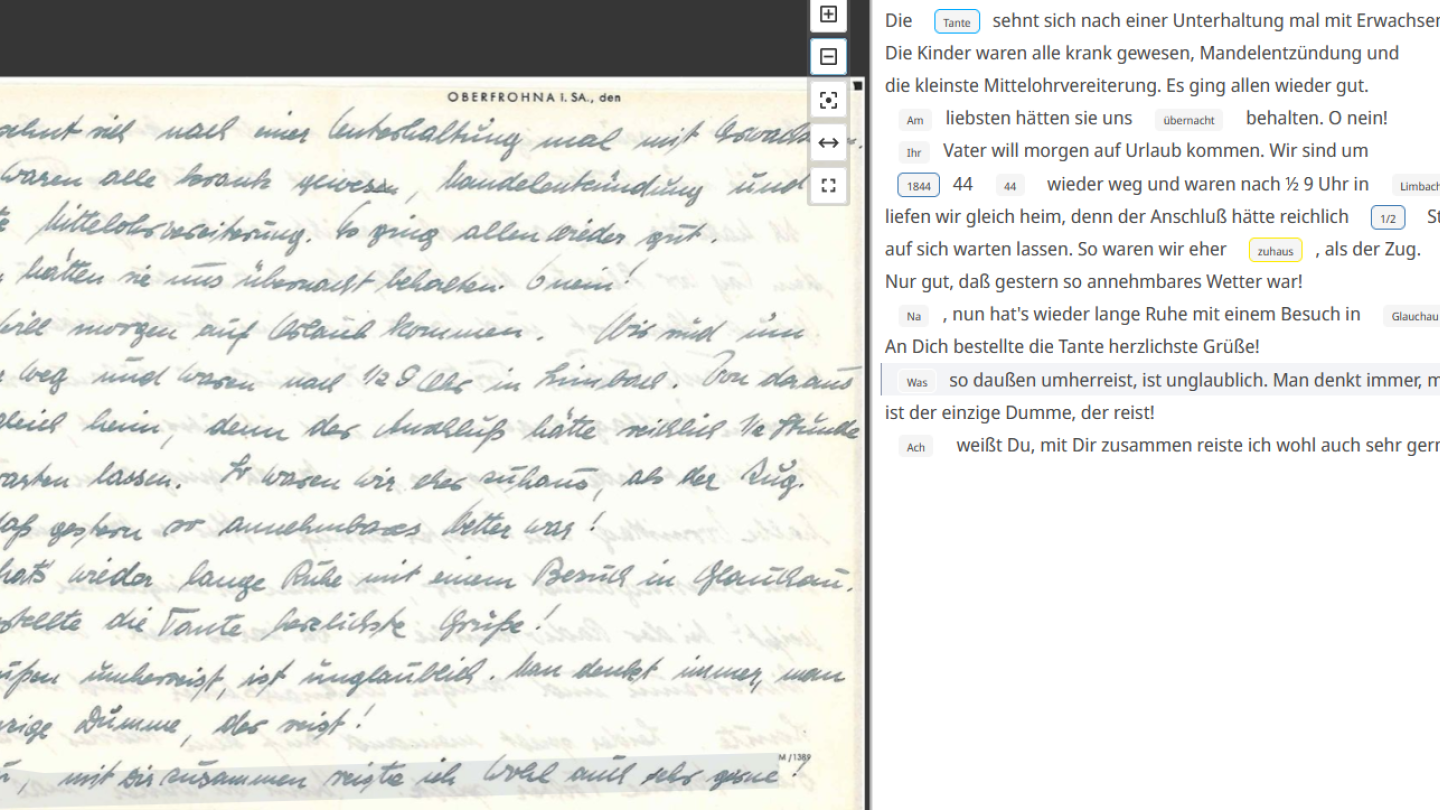 OBERFROHNA i. SA., den
sehnt sich nach einer Unterhaltung mal mit
waren alle krank gewesen, Mandelentzündung und
Mittelohrvereiterung. Es ging allen wieder gut.
hätten sie uns übernacht behalten. O nein!
will morgen auf Urlaub kommen. Wir sind um
weg und waren nach ½ 9 Uhr in Limbach. Von da aus
gleich heim, denn der Anschluß hätte reichlich ½ Stunde
warten lassen. So waren wir eher zuhaus, als der Zug.
daß gestern so annehmbares Wetter war!
hat's wieder lange Ruhe mit einem Besuch in Glauchau.
stellte die Tante herzlichste Grüße!
außen umherreist, ist unglaublich. Man denkt immer, man
zige Dumme, der reist!
M/1389
mit Dir zusammen reiste ich wohl auch sehr gerne!
Die Tante sehnt sich nach einer Unterhaltung mal mit Erwachsen
Die Kinder waren alle krank gewesen, Mandelentzündung und
die kleinste Mittelohrvereiterung. Es ging allen wieder gut.
Am liebsten hätten sie uns übernacht behalten. O nein!
Ihr Vater will morgen auf Urlaub kommen. Wir sind um
1844 44 44 wieder weg und waren nach ½ 9 Uhr in Limbach
liefen wir gleich heim, denn der Anschluß hätte reichlich 1/2 St
auf sich warten lassen. So waren wir eher zuhaus , als der Zug.
Nur gut, daß gestern so annehmbares Wetter war!
Na , nun hat's wieder lange Ruhe mit einem Besuch in Glauchau
An Dich bestellte die Tante herzlichste Grüße!
Was so daußen umherreist, ist unglaublich. Man denkt immer, m
ist der einzige Dumme, der reist!
Ach weißt Du, mit Dir zusammen reiste ich wohl auch sehr gern